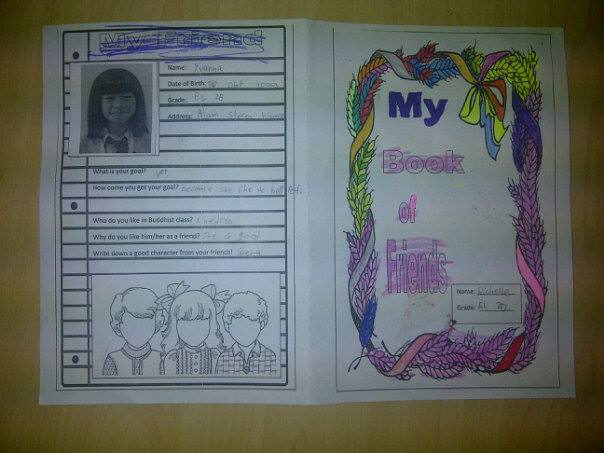 My Friend
Name: Yvanna
Date of Birth: Okt 2009
Grade: EL 2B
Address: Alam Sutera
What is your goal? vet
How come you get your goal? because she like to help pet.
Who do you like in Buddhist class?
Why do you like him/her as a friend? she is good
Write down a good character from your friends!
My
Book
of
Friends
Name: Richelle
Grade: EL 2D